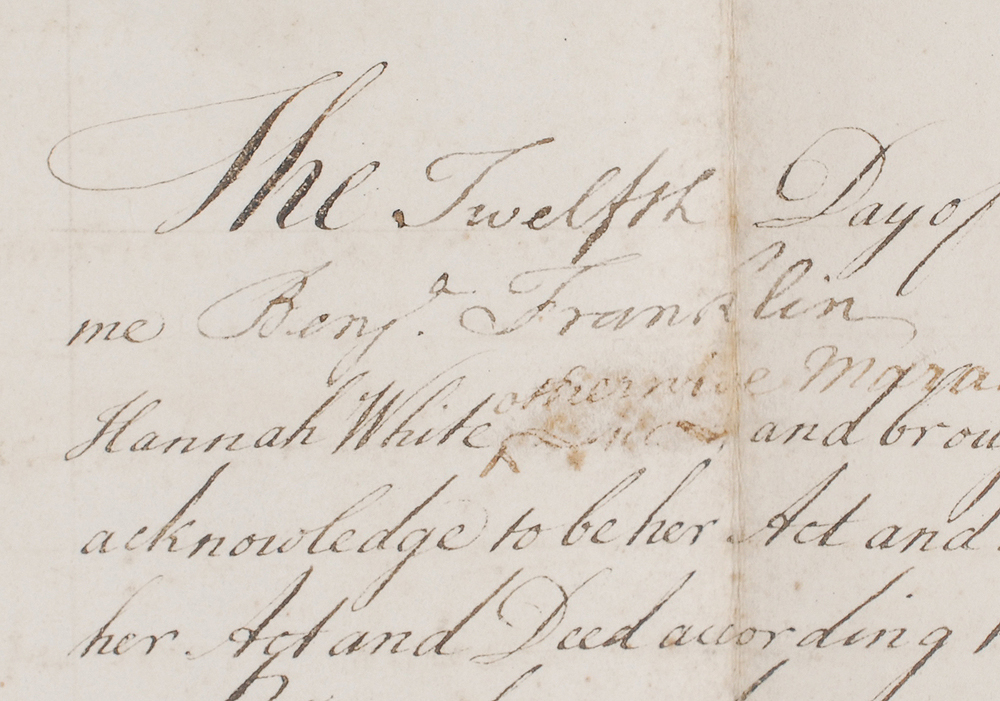 The Twelfth Day of
me Benj.ª Franklin
otherwise Mara
Hannah White and brou
acknowledge to be her Act and
her Act and Deed according